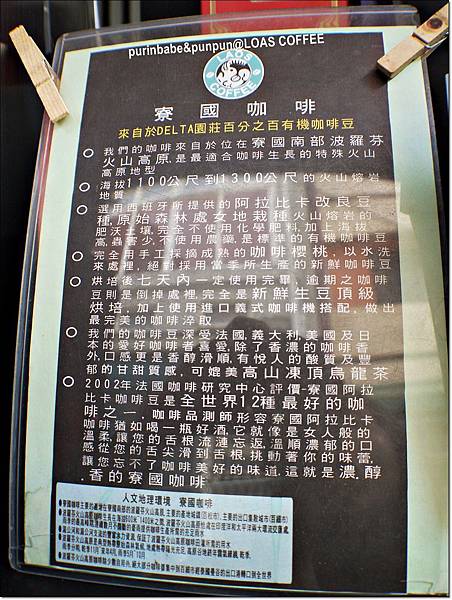 purinbabe&punpun@LOAS COFFEE
LAOS
COFFEE
寮國咖啡
來自於DELTA園莊百分之百有機咖啡豆
我們的咖啡來自於位在寮國南部波羅芬
火山高原.是最適合咖啡生長的特殊火山
高原地型
海拔1100公尺到1300公尺的火山熔岩
地質
選用西班牙所提供的阿拉比卡改良豆
種,原始森林處女地栽種火山熔岩的
肥沃土壤,完全不使用化學肥料,加上海拔
高,蟲害少,不使用農藥,是標準的有機咖啡豆
完全用手工採摘成熟的咖啡櫻桃,以水洗
來處裡,絕對採用當季所生產的新鮮咖啡豆
烘焙後七天內一定使用完畢,逾期之咖啡
豆則是倒掉處裡.完全是新鮮生豆頂級
烘焙,加上使用進口義式咖啡機搭配,做出
最完美的咖啡淬取
我們的咖啡豆深受法國,義大利,美國及日
本的愛好咖啡者喜愛,除了香濃的咖啡香
外,口感更是香醇滑順,有悅人的酸質及豐
郁的甘甜質感,可媲美高山凍頂烏龍茶
2002年法國咖啡研究中心評價-寮國阿拉
比卡咖啡豆是全世界12種最好的咖
啡之一,咖啡品測師形容寮國阿拉比卡
咖啡猶如喝一瓶好酒,它就像是女人般的
溫柔,讓您的舌根流漣忘返,溫順濃郁的口
感從您的舌尖滑到舌根,挑動著你的味蕾,
讓您忘不了咖啡美好的味道.這就是濃.醇
.香的寮國咖啡
人文地理環境 寮國咖啡